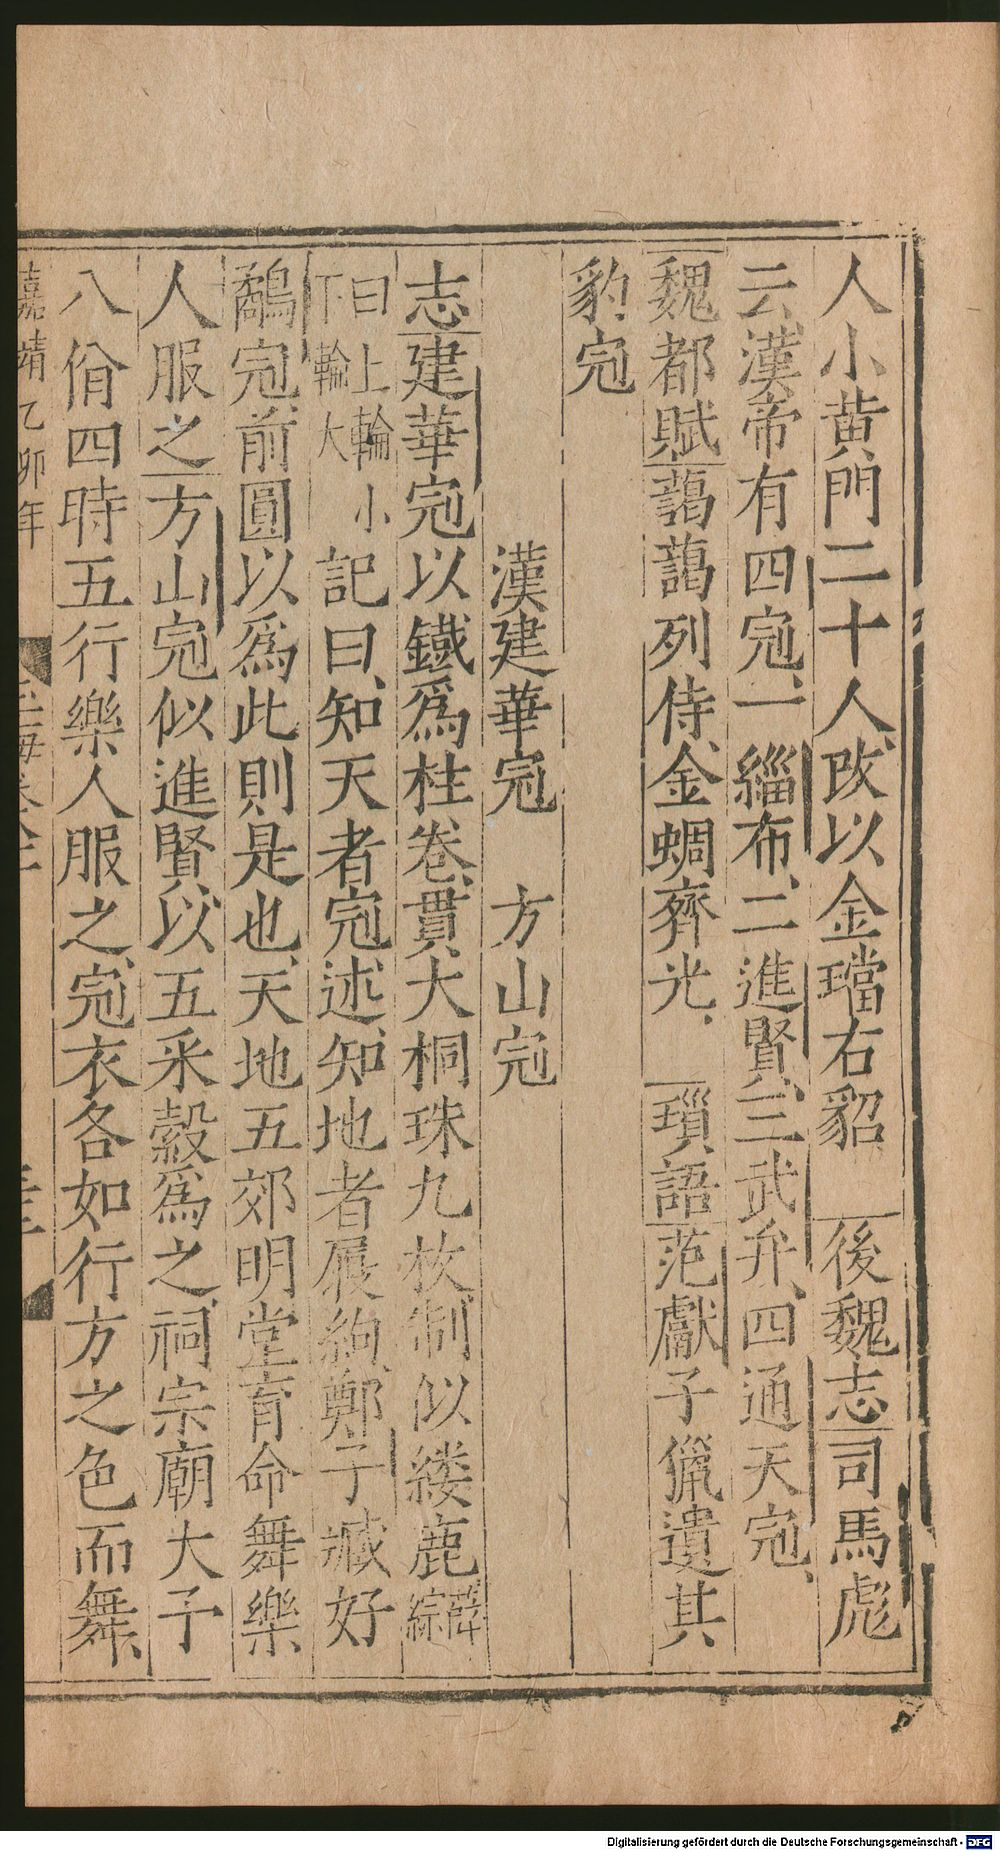 人小黄門二十人改以金璫右貂　後魏志司馬彪
云漢帝有四冠一緇布二進賢三武弁四通天冠
魏都賦藹藹列侍金蜩齊光　瑣語范獻子獵遺其
豹冠
漢建華冠　方山冠
志建華冠以鐵爲柱卷貫大桐珠九枚制似縷鹿薛綜
曰上輪小下輪大記曰知天者冠述知地者屨絇鄭子臧好
鷸冠前圓以爲此則是也天地五郊明堂育命舞樂
人服之方山冠似進賢以五采縠爲之祠宗廟大予
八佾四時五行樂人服之冠衣各如行方之色而舞
嘉靖乙卯年
Digitalisierung gefördert durch die Deutsche Forschungsgemeinschaft - DFG